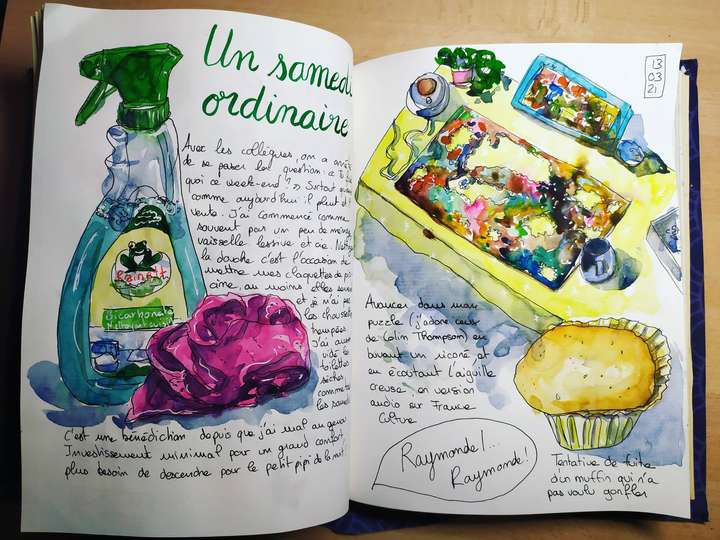 Un samedi
ordinaire
Avec les collègues, on a arrêté
de se poser la question : "Tu fais
quoi ce week-end ?" Surtout quand
comme aujourd'hui il pleut et
vente. J'ai commencé comme
souvent par un peu de ménage
vaisselle lessive et
la douche c'est l'occasion de
mettre mes claquettes de pis
cine, au moins elles servent
et je n'ai pas
les chausse
trempées
J'ai aussi
vidé les
toilettes
sèches,
comme to
les samedi
C'est une bénédiction depuis que j'ai mal au genou
Investissement minimal pour un grand confort,
plus besoin de descendre pour le petit pipi de la nuit
Rainett
bicarbonate
Nettoyant cuisine
13
03
21
Avancer dans mon
puzzle (j'adore ceux
de Colin Thompson) en
buvant un ricoré et
en écoutant l'aiguille
creuse, en version
audio sur France
Culture
Raymonde !...
Raymonde !
Tentative de fuite
d'un muffin qui n'a
pas voulu gonfler